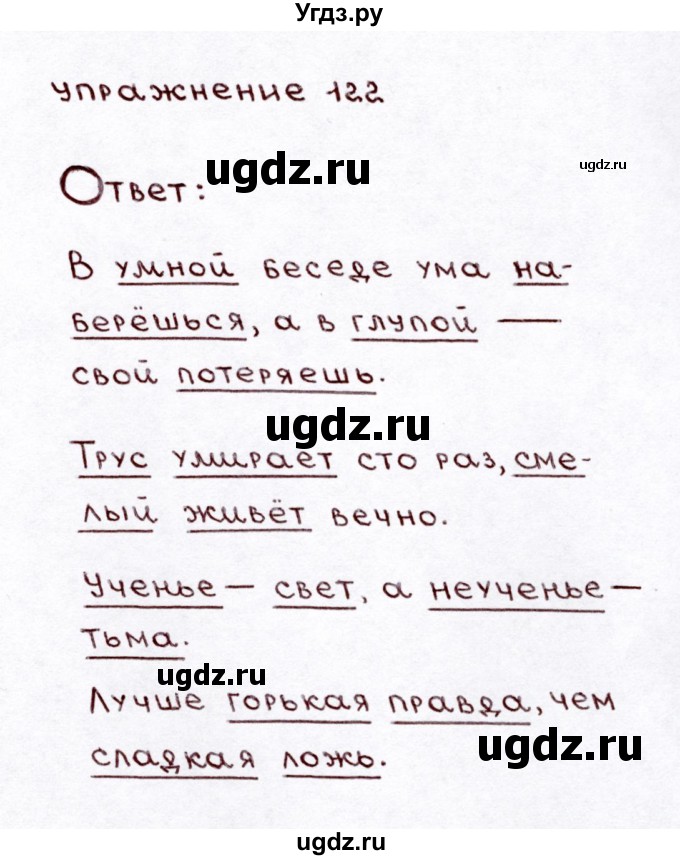 Угдз.ру
упражнение 122
ugdz.ru
ugdz.ru
Ответ:
В умной беседе ума на-
берёшься, а в глупой —
свой потеряешь.
ugdz.ru
Трус умирает сто раз, сме-
лый живёт вечно.
Ученье — свет, а неученье —
тьма.
ugdz.ru
Лучше горькая правда, чем
ugdz.ru
сладкая ложь.
ugdz.ru